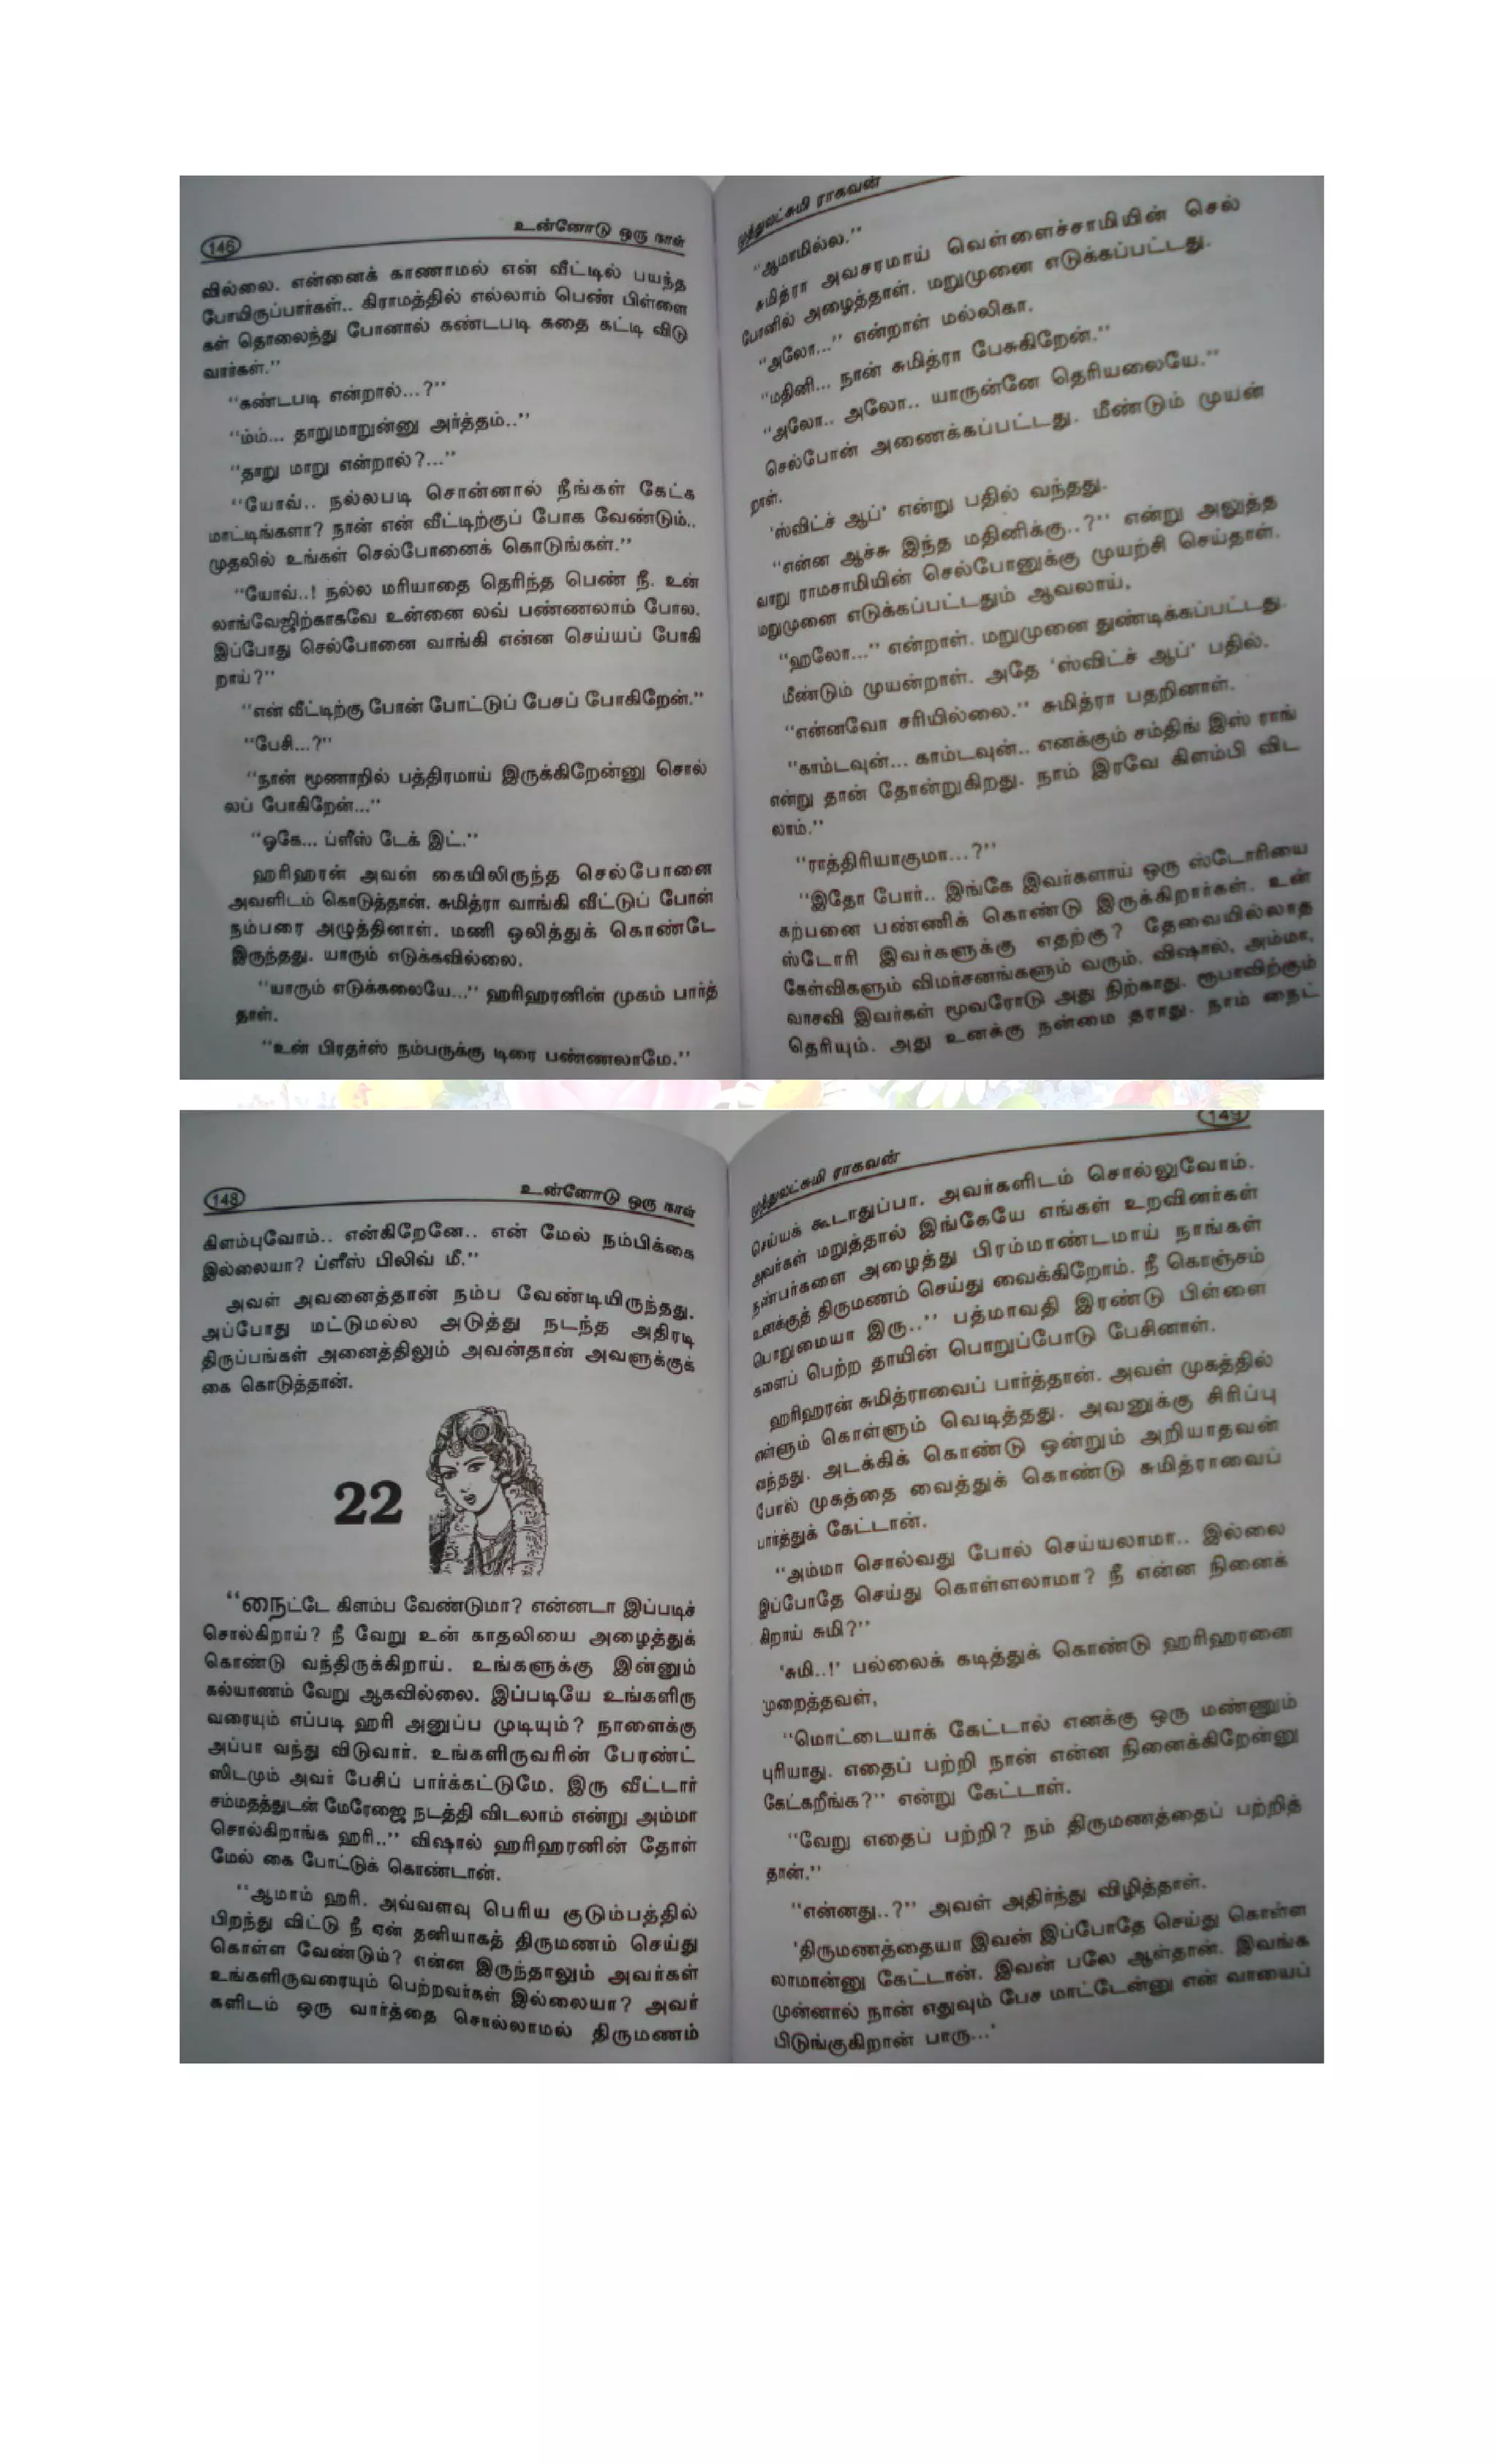 146
உன்னோடு ஒரு நாள்
வில்லை. என்னைக் காணாமல் என் வீட்டில் பயந்த
போயிருப்பார்கள்.. கிராமத்தில் எல்லாம் பெண் பிள்ளை
கள் தொலைந்து போனால் கண்டபடி கதை கட்டி விடு
வார்கள்.”
“கண்டபடி என்றால்...?”
“ம்ம்... தாறுமாறுன்னு அர்த்தம்..”
“தாறு மாறு என்றால்?...”
“யோவ்.. நல்லபடி சொன்னால் நீங்கள் கேட்க
மாட்டிங்களா? நான் என் வீட்டிற்குப் போக வேண்டும்..
முதலில் உங்கள் செல்போனைக் கொடுங்கள்.”
“யோவ்..! நல்ல மரியாதை தெரிந்த பெண் நீ. உன்
லாங்வேஜிற்காகவே உன்னை லவ் பண்ணலாம் போல.
இப்போது செல்போனை வாங்கி என்ன செய்யப் போகி
றாய்?”
“என் வீட்டிற்கு போன் போட்டுப் பேசப் போகிறேன்.”
“பேசி...?”
“நான் மூணாறில் பத்திரமாய் இருக்கிறேன்னு சொல்
லப் போகிறேன்...”
“ஓகே... ப்ளீஸ் டேக் இட்.”
ஹரிஹரன் அவன் கையிலிருந்த செல்போனை
அவளிடம் கொடுத்தான். சுமித்ரா வாங்கி வீட்டுப் போன்
நம்பரை அழுத்தினாள். மணி ஒலித்துக் கொண்டே
இருந்தது. யாரும் எடுக்கவில்லை.
“யாரும் எடுக்கலையே...” ஹரிஹரனின் முகம் பார்த்
தாள்.
“உன் பிரதர்ஸ் நம்பருக்கு டிரை பண்ணலாமே.”
முத்துலட்சுமி ராகவன்
“ஆமாமில்ல.”
சுமித்ரா அவசரமாய் வெள்ளைச்சாமியின் செல்
போனில் அழைத்தாள். மறுமுனை எடுக்கப்பட்டது.
“அலோ...” என்றாள் மல்லிகா.
“மதினி... நான் சுமித்ரா பேசுகிறேன்.”
“அலோ.. அலோ.. யாருன்னே தெரியலையே.”
செல்போன் அணைக்கப்பட்டது. மீண்டும் முயன்
றாள்.
‘ஸ்விட்ச் ஆப்’ என்று பதில் வந்தது.
“என்ன ஆச்சு இந்த மதினிக்கு..?” என்று அலுத்த
வாறு ராமசாமியின் செல்போனுக்கு முயற்சி செய்தாள்.
மறுமுனை எடுக்கப்பட்டதும் ஆவலாய்,
“ஹலோ...” என்றாள். மறுமுனை துண்டிக்கப்பட்டது.
மீண்டும் முயன்றாள். அதே ‘ஸ்விட்ச் ஆப்’ பதில்.
“என்னவோ சரியில்லை.” சுமித்ரா பதறினாள்.
“காம்டவுன்... காம்டவுன்.. எனக்கும் சம்திங் இஸ் ராங்
என்று தான் தோன்றுகிறது. நாம் இரவே கிளம்பி விட
லாம்.”
“ராத்திரியாகுமா...?”
“இதோ போர்.. இங்கே இவர்களாய் ஒரு ஸ்டோரியை
கற்பனை பண்ணிக் கொண்டு இருக்கிறார்கள். உன்
ஸ்டோரி இவர்களுக்கு எதற்கு? தேவையில்லாத
கேள்விகளும் விமர்சனங்களும் வரும். விஷால், அம்மா,
வாசவி இவர்கள் மூவரோடு அது நிற்காது. ரூபாவிற்கும்
தெரியும். அது உனக்கு நன்மை தராது. நாம் நைட்
148
உன்னோடு ஒரு நாள்
கிளம்புவோம்.. என்கிறேனே.. என் மேல் நம்பிக்கை
இல்லையா? ப்ளீஸ் பிலிவ் மீ.”
அவள் அவனைத்தான் நம்ப வேண்டியிருந்தது.
அப்போது மட்டுமல்ல அடுத்து நடந்த அதிரடி
திருப்பங்கள் அனைத்திலும் அவன்தான் அவளுக்குக்
கை கொடுத்தான்.
22
“நைட்டே கிளம்ப வேண்டுமா? என்னடா இப்படிச்
சொல்கிறாய்? நீ வேறு உன் காதலியை அழைத்துக்
கொண்டு வந்திருக்கிறாய். உங்களுக்கு இன்னும்
கல்யாணம் வேறு ஆகவில்லை. இப்படியே உங்களிரு
வரையும் எப்படி ஹரி அனுப்ப முடியும்? நாளைக்கு
அப்பா வந்து விடுவார். உங்களிருவரின் பேரண்ட்
ஸிடமும் அவர் பேசிப் பார்க்கட்டுமே. இரு வீட்டார்
சம்மதத்துடன் மேரேஜை நடத்தி விடலாம் என்று அம்மா
சொல்கிறாங்க ஹரி..” விஷால் ஹரிஹரனின் தோள்
மேல் கை போட்டுக் கொண்டான்.
“ஆமாம் ஹரி. அவ்வளவு பெரிய குடும்பத்தில்
பிறந்து விட்டு நீ ஏன் தனியாகத் திருமணம் செய்து
கொள்ள வேண்டும்? என்ன இருந்தாலும் அவர்கள்
உங்களிருவரையும் பெற்றவர்கள் இல்லையா? அவர்
களிடம் ஒரு வார்த்தை சொல்லாமல் திருமணம்
149
முத்துலட்சுமி ராகவன்
செய்யக் கூடாதுப்பா. அவர்களிடம் சொல்லுவோம்.
அவர்கள் மறுத்தால் இங்கேயே எங்கள் உறவினர்கள்
நண்பர்களை அழைத்து பிரம்மாண்டமாய் நாங்கள்
உனக்குத் திருமணம் செய்து வைக்கிறோம். நீ கொஞ்சம்
பொறுமையா இரு..” பத்மாவதி இரண்டு பிள்ளை
களைப் பெற்ற தாயின் பொறுப்போடு பேசினாள்.
ஹரிஹரன் சுமித்ராவைப் பார்த்தான். அவள் முகத்தில்
எள்ளும் கொள்ளும் வெடித்தது. அவனுக்கு சிரிப்பு
வந்தது. அடக்கிக் கொண்டு ஒன்றும் அறியாதவன்
போல் முகத்தை வைத்துக் கொண்டு சுமித்ராவைப்
பார்த்துக் கேட்டான்.
“அம்மா சொல்வது போல் செய்யலாமா.. இல்லை
இப்போதே செய்து கொள்ளலாமா? நீ என்ன நினைக்
கிறாய் சுமி?”
‘சுமி..!’ பல்லைக் கடித்துக் கொண்டு ஹரிஹரனை
முறைத்தவள்,
“மொட்டையாக் கேட்டால் எனக்கு ஒரு மண்ணும்
புரியாது. எதைப் பற்றி நான் என்ன நினைக்கிறேன்னு
கேட்கறீங்க?” என்று கேட்டாள்.
“வேறு எதைப் பற்றி? நம் திருமணத்தைப் பற்றித்
தான்.”
“என்னது..?” அவள் அதிர்ந்து விழித்தாள்.
‘திருமணத்தையா இவன் இப்போதே செய்து கொள்ள
லாமான்னு கேட்டான். இவன் பலே ஆள்தான். இவங்க
முன்னால் நான் எதுவும் பேச மாட்டேன்னு என் வாயைப்
பிடுங்குகிறான் பாரு...’